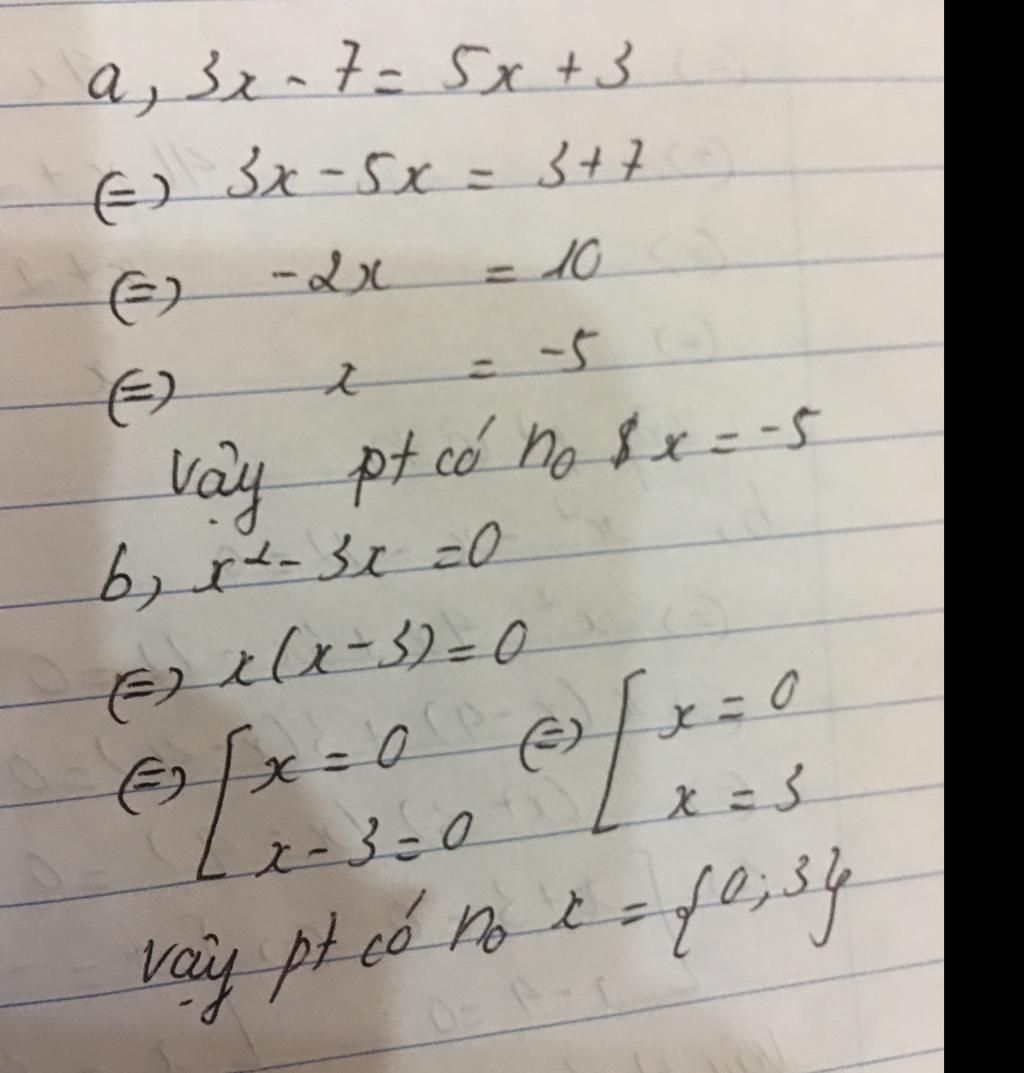 a, 3x - 7 = 5x + 3
(=) 3x - 5x = 3 + 7
(=) -2x = 10
(=) x = -5
Vậy pt có no x = -5
b, x² - 3x = 0
(=) x(x - 3) = 0
(=) [ x = 0 (=) [ x = 0
x - 3 = 0 x = 3
Vậy pt có no x = {0; 3}